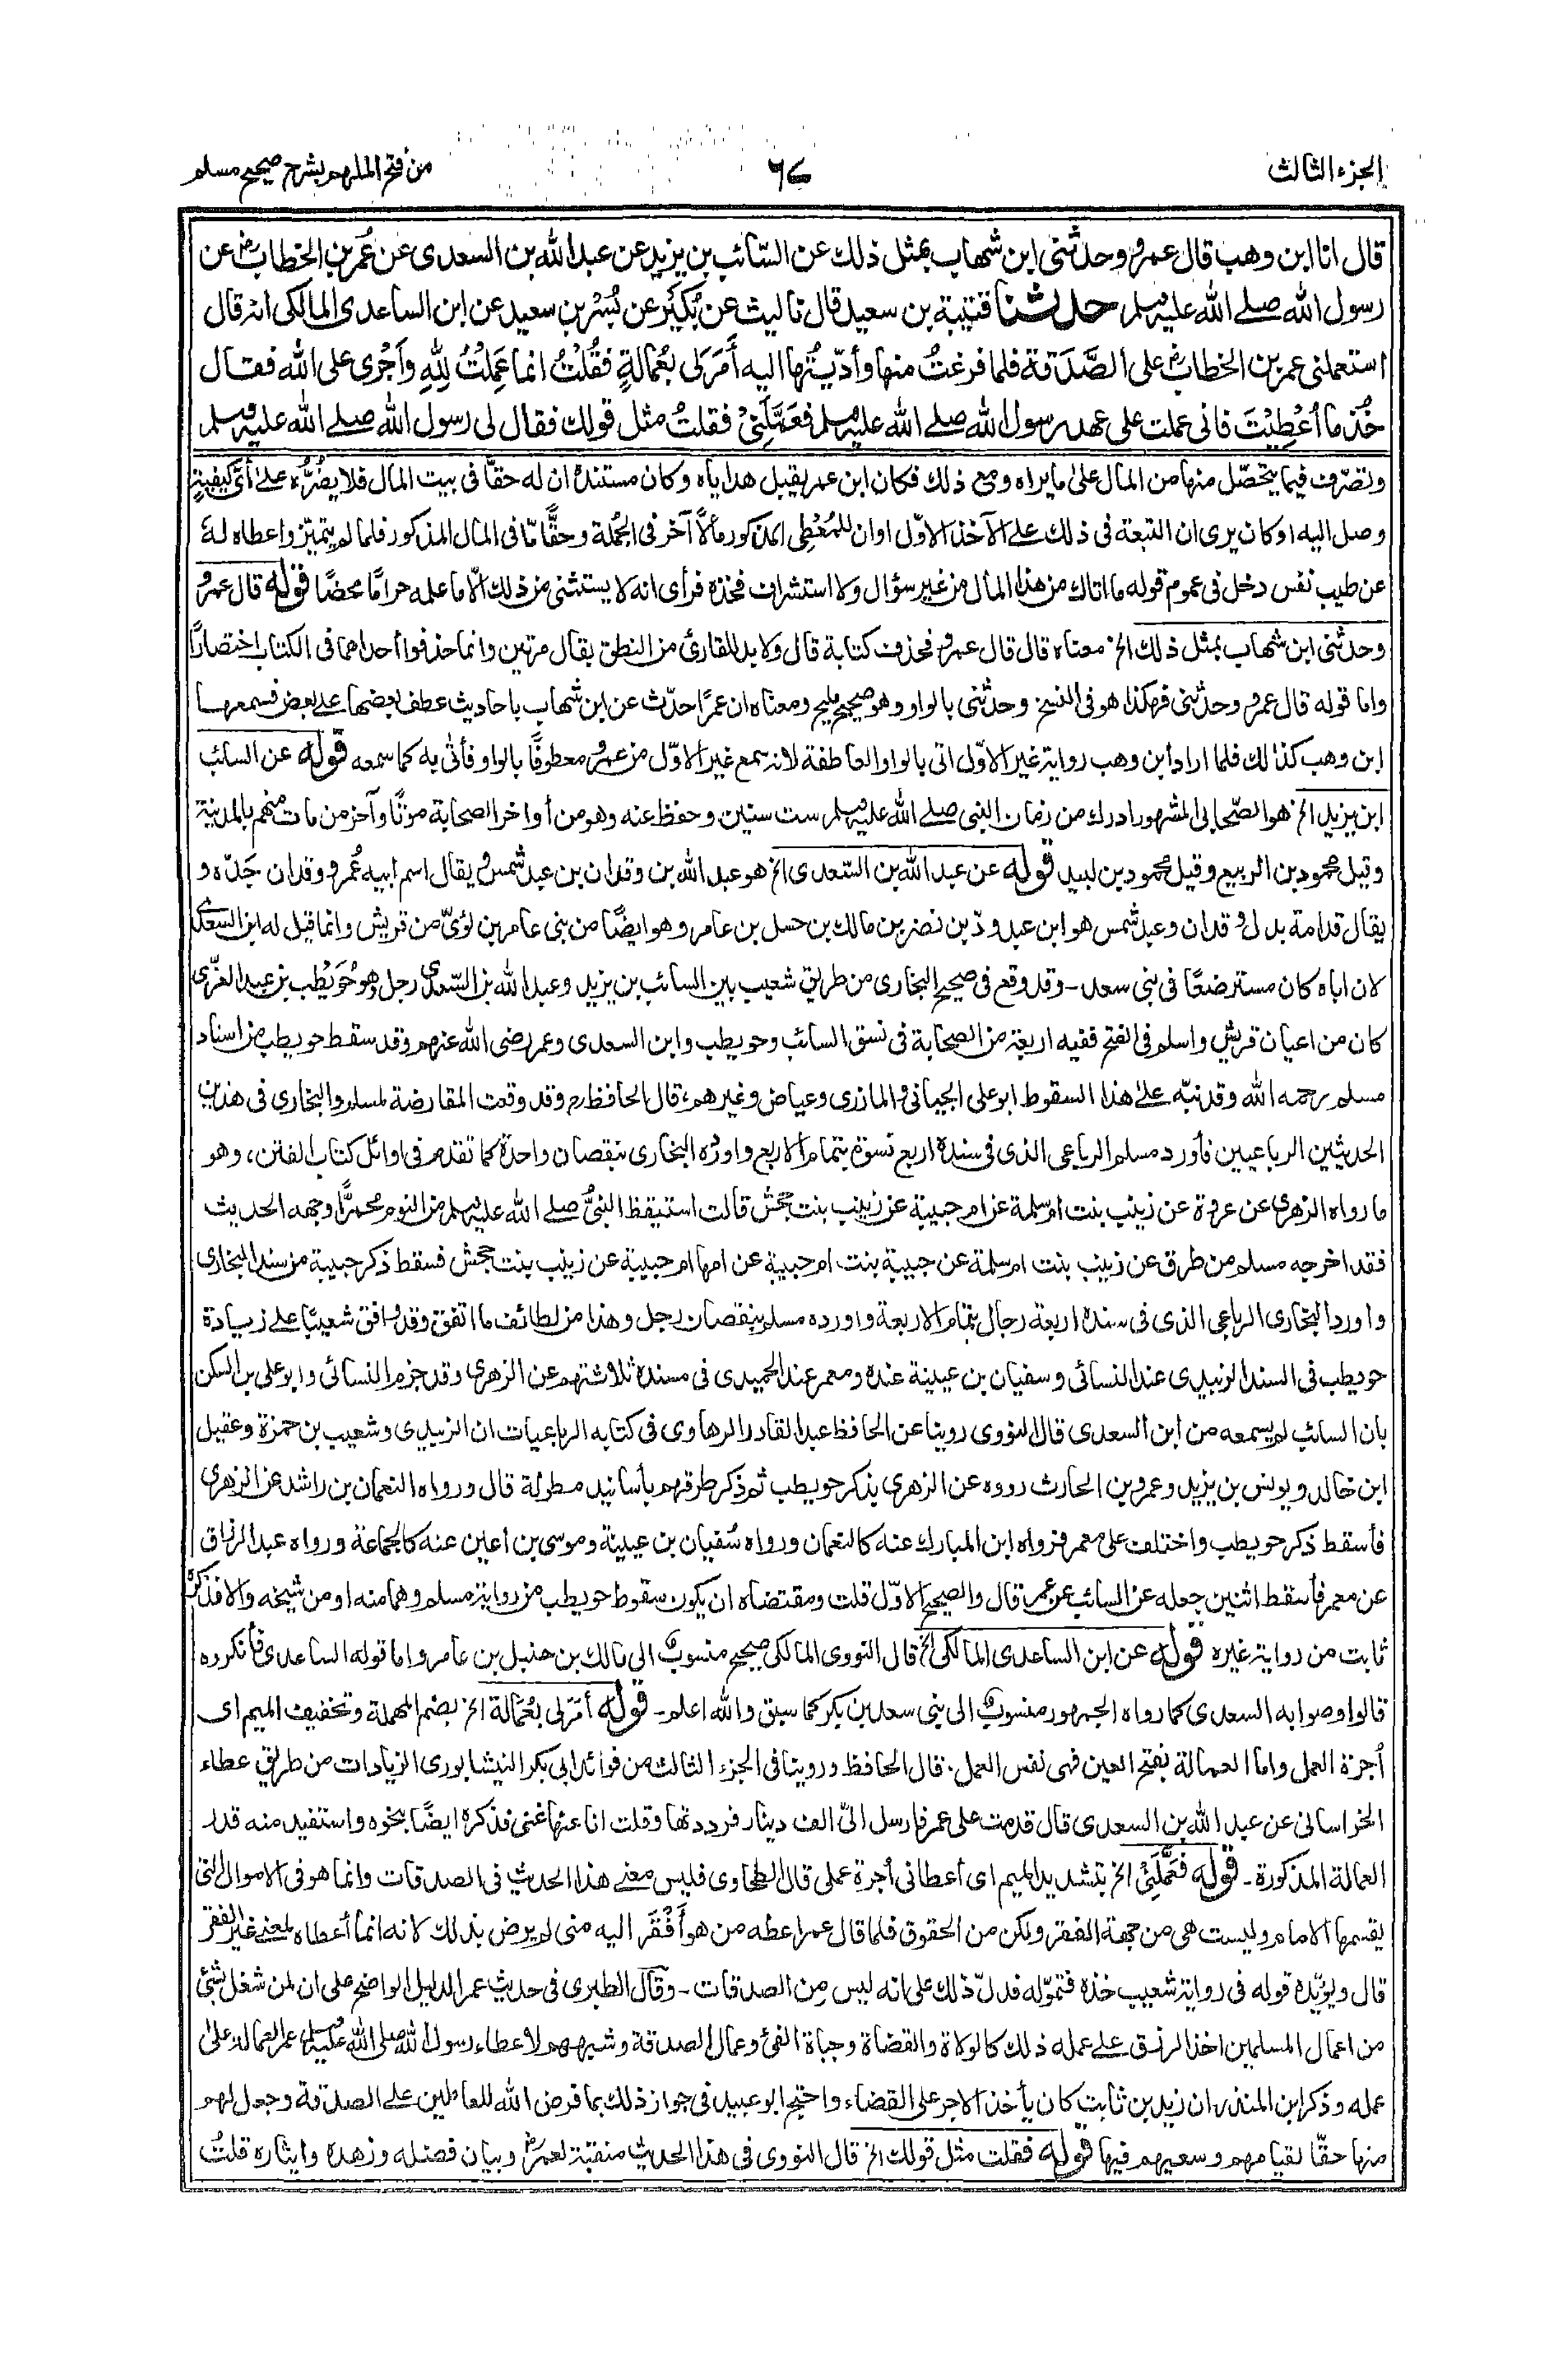 الجزء الثالث
٦٧
من فتح الملهم بشرح صحيح مسلم
قال انا ابن وهب قال عمرو وحدثنى ابن شهاب بمثل ذلك عن السّائب بن يزيد عن عبد الله بن السعدى عن عُمر بن الخطابؓ عن
رسول الله صلے الله عليه وسلم حدثنا قتيبة بن سعيد قال نا ليث عن بُكَيْر عن بُسْر بن سعيد عن ابن الساعدى المالكى انه قال
استعملنى عمر بن الخطابؓ على الصَّدَقة فلما فرغتُ منها وأدّيتُها اليه أَمَرَلى بعُمالةٍ فقُلْتُ انما عَمِلْتُ لِلّٰهِ وأَجْرى على الله فقال
خُذ ما أُعْطِيْتَ فانى عملت على عهد رسول الله صلے الله عليه وسلم فعَمَّلَنِىْ فقلتُ مثل قولك فقال لى رسول الله صلے الله عليه وسلم
وتصرّف فيما يتحصّل منها من المال علىٰ ما يراه ومع ذلك فكان ابن عمر يقبل هداياه وكان مستنده ان له حقًّا فى بيت المال فلا يضُرُّه علے أىّ كيفيةٍ
وصل اليه او كان يرى ان التبعة فى ذلك علے الآخذ الاوّل او ان للمُعْطِى المذكور مالًا آخر فى الجُملة وحقًّا مّا فى المال المذكور فلما لم يتميّز واعطاه له
عن طيب نفس دخل فى عموم قوله ما اتاك من هذا المال من غير سؤال ولا استشراف فخذه فرأى انه لا يستثنى من ذلك الّا ما علمه حرامًا محضًا قوله قال عمرو
وحدثنى ابن شهاب بمثل ذلك الخ معناه قال قال عمرو فحذف كتابة قال ولا بد للقارئ من النطق بقال مرتين وانما حذفوا أحداهما فى الكتاب اختصارًا
واما قوله قال عمرو وحدثنى فهكذا هو فى النسخ وحدثنى بالواو وهو صحيح مليح ومعناه ان عمرًا حدّث عن ابن شهاب باحاديث عطف بعضها علے بعض فسمعها
ابن وهب كذلك فلما اراد ابن وهب رواية غير الاوّل اتى بالواو العاطفة لانه سمع غير الاوّل من عمرو معطوفًا بالواو فأتىٰ به كما سمعه قوله عن السائب
ابن يزيد الخ هو الصّحابى المشهور ادرك من زمان النبى صلے الله عليه وسلم ست سنين وحفظ عنه وهو من أواخر الصحابة موتًا وآخر من مات منهم بالمدينة
وقيل محمود بن الربيع وقيل محمود بن لبيد قوله عن عبد الله بن السّعدى الخ هو عبد الله بن وقدان بن عبد شمس ويقال اسم ابيه عُمرو وقدان جدّه و
يقال قدامة بدل وقدان وعبد شمس هو ابن عبد ودّ بن نضر بن مالك بن حسل بن عامر وهو ايضًا من بنى عامر بن لؤىّ من قريش وانما قيل له ابن السعدى
لان اباه كان مسترضعًا فى بنى سعد - وقد وقع فى صحيح البخارى من طريق شعيب بين السائب بن يزيد وعبد الله بن السّعدى رجل وهو حُوَيْطِب بن عبد العزّى
كان من اعيان قريش واسلم فى الفتح ففيه اربعة من الصحابة فى نسق السائب وحويطب وابن السعدى وعمر رضى الله عنهم وقد سقط حويطب من اسناد
مسلم رحمه الله وقد نبّه علے هذا السقوط ابو على الجيانى والمازرى وعياض وغيرهم، قال الحافظ رح وقد وقعت المقارضة لمسلم والبخارى فى هذين
الحديثين الرباعيين فأورد مسلم الرباعى الذى فى سنده اربع نسوة بتمام الاربع واورده البخارى بنقصان واحدة كما تقدم فى اوائل كتاب الفتن، وهو
ما رواه الزهرى عن عروة عن زينب بنت ام سلمة عن ام حبيبة عن زينب بنت جحش قالت استيقظ النبىُّ صلے الله عليه وسلم من النوم محمرًّا وجهه الحديث
فقد اخرجه مسلم من طرق عن زينب بنت ام سلمة عن حبيبة بنت ام حبيبة عن امها ام حبيبة عن زينب بنت جحش فسقط ذكر حبيبة من سند البخارى
واورد البخارى الرباعى الذى فى سنده اربعة رجال بتمام الاربعة واورده مسلم بنقصان رجل وهذا من لطائف ما اتفق وقد وافق شعيبًا علے زيادة
حويطب فى السند الزبيدى عند النسائى وسفيان بن عيينة عنده ومعمر عند الحميدى فى مسنده ثلاثتهم عن الزهرى وقد جزم النسائى وابو على بن السكن
بان السائب لم يسمعه من ابن السعدى قال النووى روينا عن الحافظ عبد القادر الرهاوى فى كتابه الرباعيات ان الزبيدى وشعيب بن حمزة وعقيل
ابن خالد ويونس بن يزيد وعمرو بن الحارث رووه عن الزهرى بذكر حويطب ثم ذكر طرقهم بأسانيد مطولة قال ورواه النعمان بن راشد عن الزهرى
فأسقط ذكر حويطب واختلف على معمر فرواه ابن المبارك عنه كالنعمان ورواه سُفيان بن عيينة وموسى بن اعين عنه كالجماعة ورواه عبد الرزاق
عن معمر فأسقط اثنين جعله عن السائب عن عمر قال والصحيح الاوّل قلت ومقتضاه ان يكون سقوط حويطب من رواية مسلم وهما منه او من شيخه والا فذكره
ثابت من رواية غيره قوله عن ابن الساعدى المالكى الخ قال النووى المالكى صحيح منسوب الى مالك بن حنبل بن عامر واما قوله الساعدى فأنكروه
قالوا وصوابه السعدى كما رواه الجمهور منسوب الى بنى سعد بن بكر كما سبق والله اعلم - قوله أمَرَلى بعُمَالة الخ بضم المهملة وتخفيف الميم اى
أجرة العمل واما العمالة بفتح العين فهى نفس العمل. قال الحافظ وروينا فى الجزء الثالث من فوائد ابى بكر النيشابورى الزيادات من طريق عطاء
الخراسانى عن عبد الله بن السعدى قال قدمت على عمر فارسل الىّ الف دينار فرددتها وقلت انا عنها غنى فذكره ايضًا بنحوه واستفيد منه قدر
العمالة المذكورة - قوله فَعَمَّلَنِىْ الخ بتشديد الميم اى أعطانى أجرة عملى قال الطحاوى فليس معنے هذا الحديث فى الصدقات وانما هو فى الاموال التى
يقسمها الامام وليست هى من جهة الفقر ولكن من الحقوق فلما قال عمر اعطه من هو أَفْقَر اليه منى لم يرض بذلك لانه انما أعطاه لمعنے غير الفقر
قال ويؤيّده قوله فى رواية شعيب خذه فتموّله فدلّ ذلك على انه ليس مِن الصدقات - وقال الطبرى فى حديث عمر الدليل الواضح على ان لمن شغل بشئ
من اعمال المسلمين اخذ الرزق علے عمله ذلك كالولاة والقضاة وجباة الفئ وعمال الصدقة وشبههم لاعطاء رسول الله صلى الله عليه وسلم عمر العمالة علىٰ
عمله وذكر ابن المنذر ان زيد بن ثابت كان يأخذ الاجر على القضاء واحتج ابو عبيد فى جواز ذلك بما فرض الله للعاملين علے الصدقة وجعل لهم
منها حقًّا لقيامهم وسعيهم فيها قوله فقلت مثل قولك الخ قال النووى فى هذا الحديث منقبة لعمرؓ وبيان فضله وزهده وايثاره قلتُ